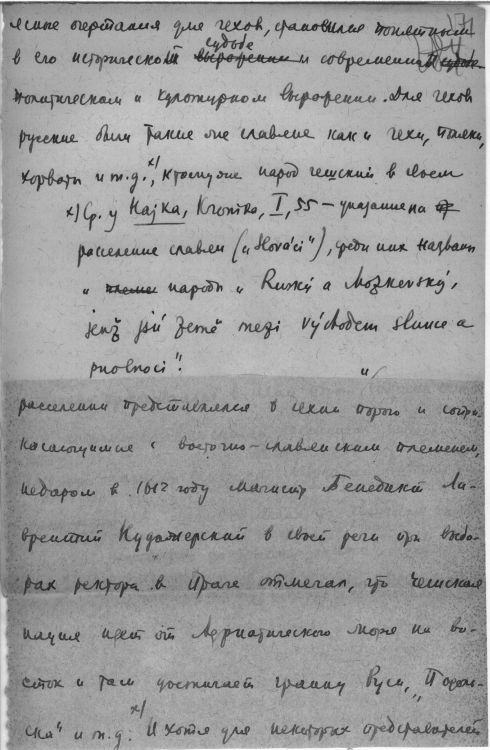 ясные очертания для чехов, становился понятным
в его исторической судьбе и современном
политическом и культурном выражении. Для чехов
русские были такие же славяне как и чехи, поляки,
хорваты и т.д.,х) к тому же народ чешский в своем
х) Ср. у Hajka, Kronika, I, 55 — указание на
расселение славян („Slováci"), среди них названы
и народы „Ruský a Mozkevský,
jenž jsú země mezi východem slunce a
půlnocí".
расселении представлялся в чехии порою и сопри-
касающимся с восточно-славянским племенем,
недаром в 1612 году магистр Бенедикт Ла-
врентий Нудожерский в своей речи при выбо-
рах ректора в Праге отмечал, что чешская
нация идет от Адриатического моря на во-
сток и там достигает границ Руси, „Подоль-
ска" и т.д.х) И хотя для некоторых представителей